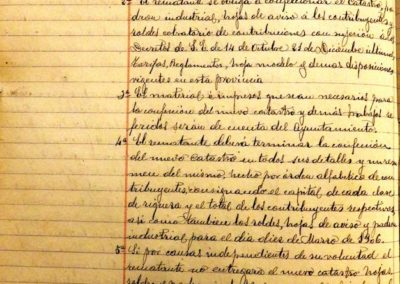 2ª El rematante se obliga a confeccionar el Catastro, pa-
dron industrial, hojas de aviso á los contribuyentes y
soldes cobratorio de contribuciones con sujecion á los
Decretos de S.E. de 14 de Octubre 21 de Diciembre últimos,
tarifas, Reglamentos, hoja modelo y demas disposiciones
vigentes en esta provincia
3ª El material é impresos que sean necesarios para
la confeccion del nuevo catastro y demás trabajos re-
feridos serán de cuenta del Ayuntamiento.
4ª El rematante deberá terminar la confeccion
del nuevo Catastro en todos sus detalles y un resu-
men del mismo hecho por órden alfabético de con-
tribuyentes, consignando el capital de cada clase
de riqueza y el total de los contribuyentes respectivos
así como tambien los soldes, hojas de aviso y padron
industrial para el dia diez de Marzo de 1906.
5ª Si por causas independientes de su voluntad el
rematante no entregara el nuevo catastro hojas,